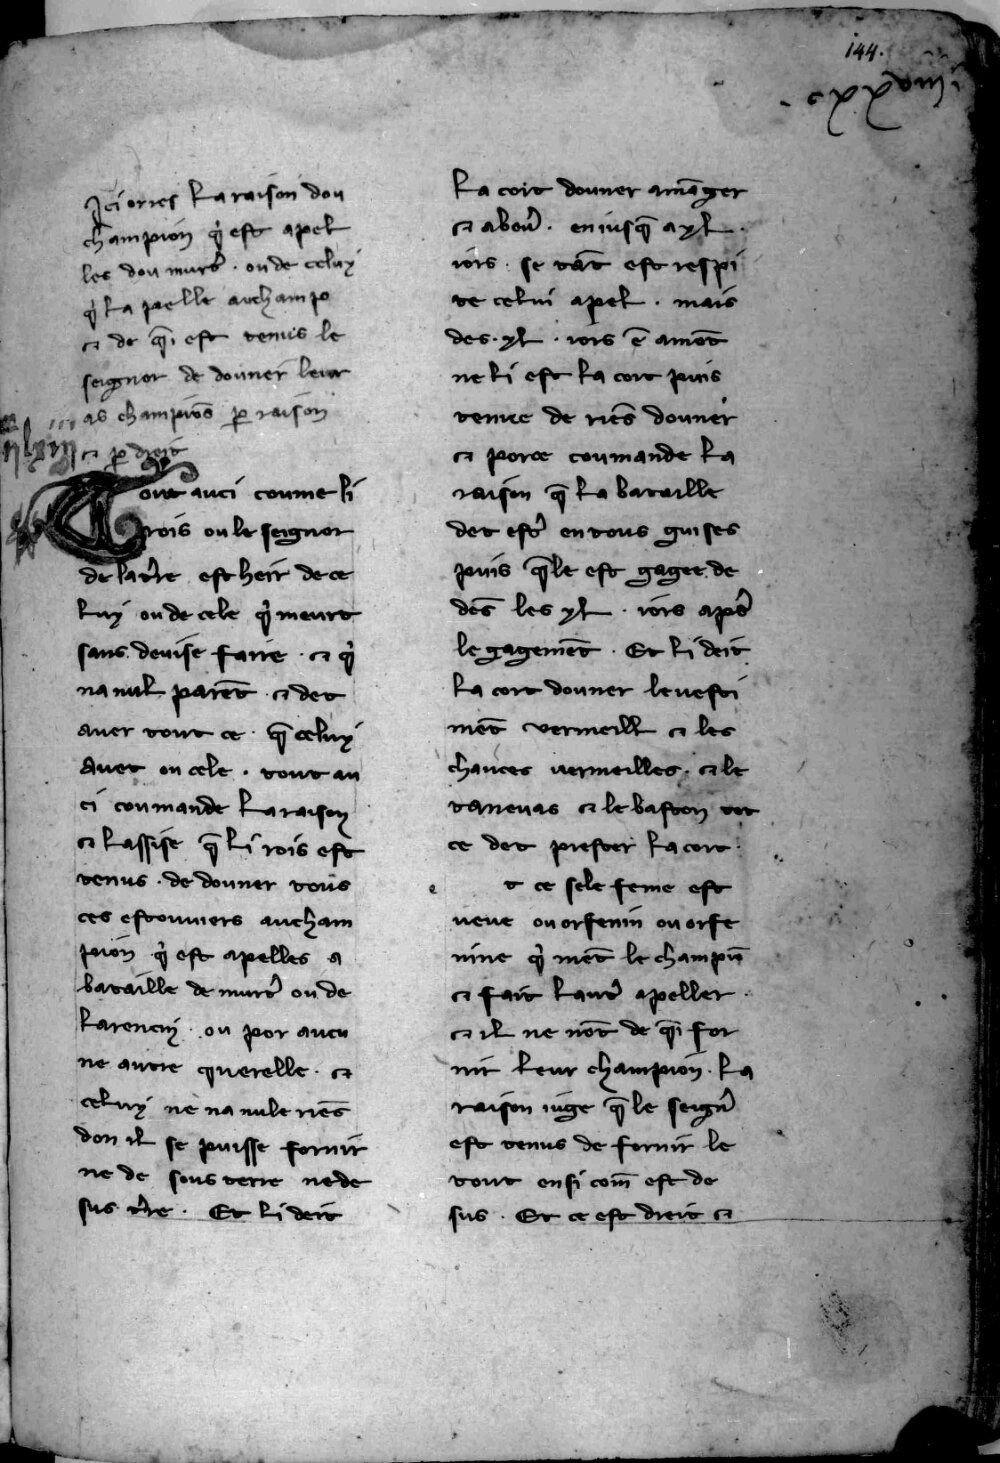 144.
cxxxviiii
Ici orres la raison dou
champion q̇ est apel
les dou murtᵉ . ou de celuy
q̇ la pelle au champ
⁊ de q̄i est tenus le
seignor de douner leur
as champiōs ꝑ raison
⁊ ꝑ dreit
Tout auci coume li
rois ou le seignor
de la tᵉre est heir de ce
luy ou de cele q̇ meurt
sans deuise faire . ⁊ q̇
na nul parēt . ⁊ det
auer tout ce . q̄ celuy
auet ou cele . tout au
ci coumande la raison
⁊ lassise q̄ li rois est
tenus . de douner tous
ces estouuiers au cham
pion q̇ est apelles a
bataille de murtᵉ ou de
larencin . ou por aucu
ne autre querelle . ⁊
celuy ne na nule riēs
don il se puisse fornir
ne de sous terre ne de
sus tᵉre . Et li deit
la cort douner a māger
⁊ a beuᵉ . en iusq̄ a xl .
iors . se tāt est respi
te celui apel . mais
des . xl . iors ē amōt
ne li est la cort puis
tenue de riēs douner
⁊ porce coumande la
raison q̄ la bataille
det estᵉ en tous guises
puis q̄le est gagee de
dēs les xl . iors apᵉs
le gagemēt . Et li deit
la cort douner le uesti
mēt vermeill ⁊ les
chauces uermeilles . ⁊ le
taneuas ⁊ le baston tot
ce det prester la cort .
e t ce sele feme est
ueue ou orfenin ou orfe
nine q̇ mēt le champiō
⁊ fait lautᵉ apeller .
⁊ il ne nōt de q̄i for
nir leur champion . la
raison iuge q̄ le seignᵉ
est tenus de fornir le
tout ensi com̄ est de
sus . Et ce est dreit ⁊